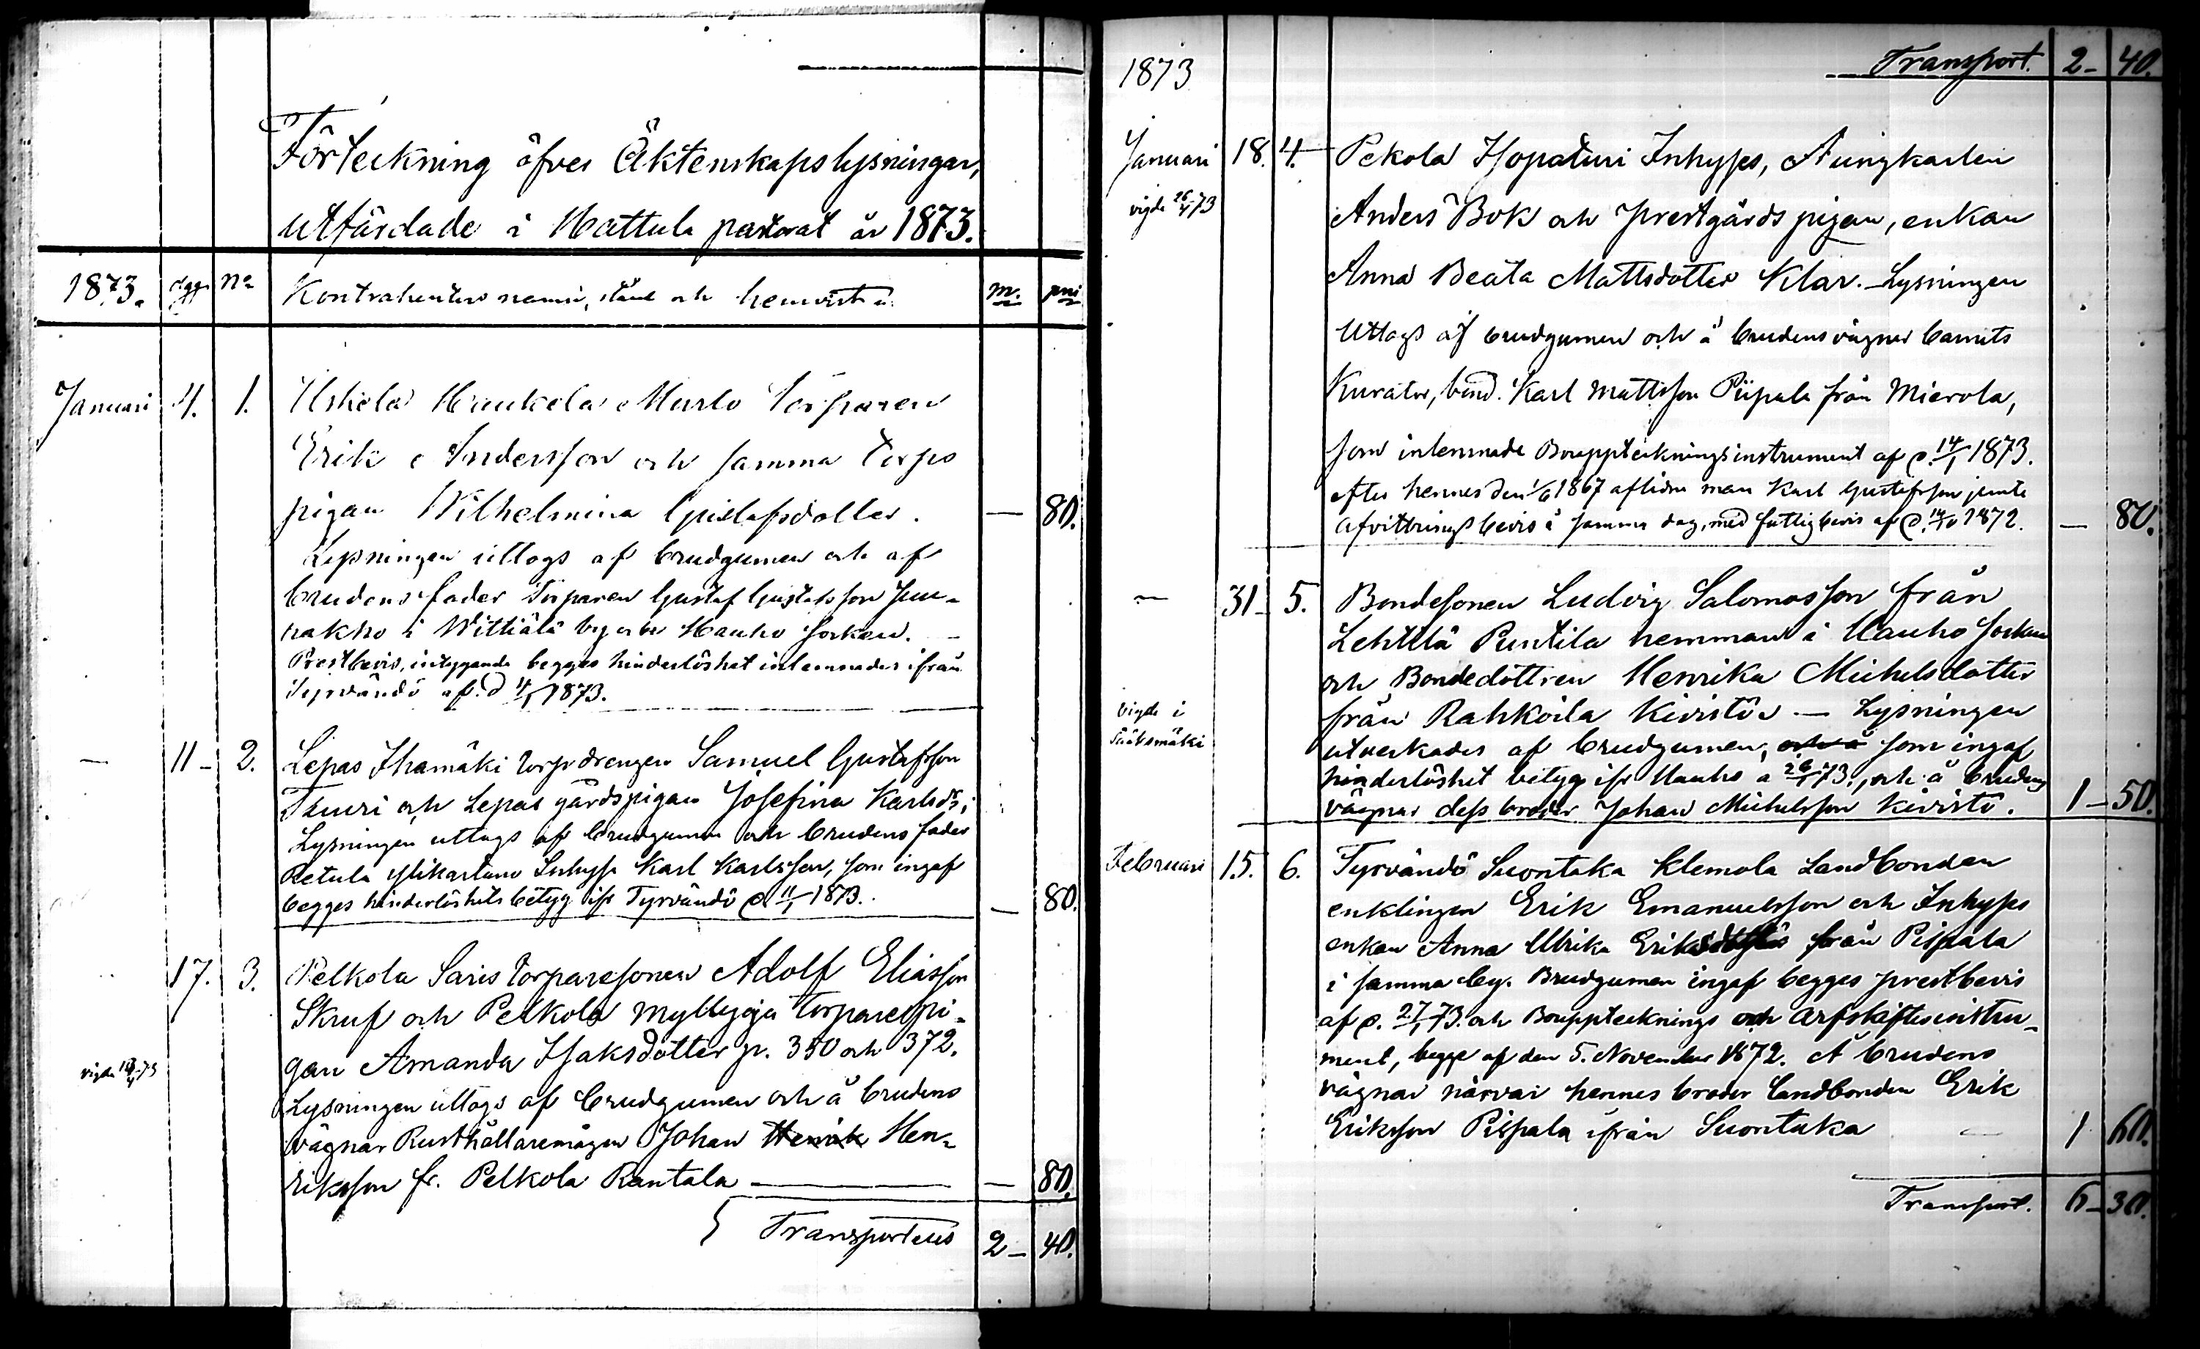 Förteckning öfver Äktenskapslysningar,
utfärdade i Hattula pastorat år 1873.
1873. dag No Kontrahenters namn, stånd och hemvist m. pni
Januari 4. 1. Uskela Haukela Murto Torparen
Erik Andersson och samma torps
pigan Wilhelmina Gustafsdotter. — 80.
Lysningen uttogs af brudgumen och af
brudens fader Torparen Gustaf Gustafsson
i Wittiälä by och Hauho socken. —
Prestbevis, intygande begges hinderlöshet inlemnades ifrån
Tyrvändö af d. 4/1 1873.
— 11 — 2. Lepas Ihamäki torpdrengen Samuel Gustafsson
Tuuri och Lepas gårdspigan Josefina Karlsdr;
Lysningen uttogs af brudgumen och brudens fader
Retula Ylikartano Inhyss Karl Karlsson, som ingaf
begges hinderlöshets betyg ifr Tyrvändö d. 11/1 1873. — 80.
17. 3. Pelkola Saris torparesonen Adolf Eliasson
Skruf och Pelkola Myllyoja torparepi-
gan Amanda Isaksdotter p. 350 och 372.
vigde 73
Lysningen uttogs af brudgumen och å brudens
vägnar Rusthållaremågen Johan Henrik Hen-
riksson fr. Pelkola Rantala — — 80.
Transporteras 2 — 40.
1873 Transport. 2 — 40.
Januari 18. 4. Pekola Isopaturi Inhyss, Aungkarlen
vigde 26/1 73
Anders Bok och prestgårds pigan, enkan
Anna Beata Mattsdotter Klar. — Lysningen
uttogs af brudgumen och å brudens vägnar barnets
Kurator, bond. Karl Mattsson Piipala från Mierola,
som inlemnade Bouppteckningsinstrument af d. 14/1 1873.
efter hennes den 1/6 1867 aflidne man Karl Gustafsson jemte
afvittrings bevis å samma dag, med fattigbevis af d. 14/10 1872. — 80.
— 31 — 5. Bondesonen Ludvig Salomosson från
Lehttlä Penttila hemman i Hauho socken
och Bondedottren Henrika Michelsdotter
vigde i
Sääksmäki
från Rahkoila Kivistö — Lysningen
utverkades af brudgumen, och å som ingaf
hinderlöshet betyg ifr Hauho å 26/1 73., och å brudens
vägnar dess broder Johan Michelsson Kivistö. 1 — 50.
Februari 15. 6. Tyrvändö Suontaka Klemola Landbonden
enklingen Erik Emanuelsson och Inhyses
enkan Anna Ulrika Eriksdotter från Pispala
i samma by. Brudgumen ingaf begges prestbevis
af d. 27/1 73. och Boupptecknings och arfskiftesinstru-
ment, begge af den 5. November 1872. Å brudens
vägnar närvar hennes broder Landbonden Erik
Eriksson Pispala ifrån Suontaka — 1 60.
Transport. 6 — 30.